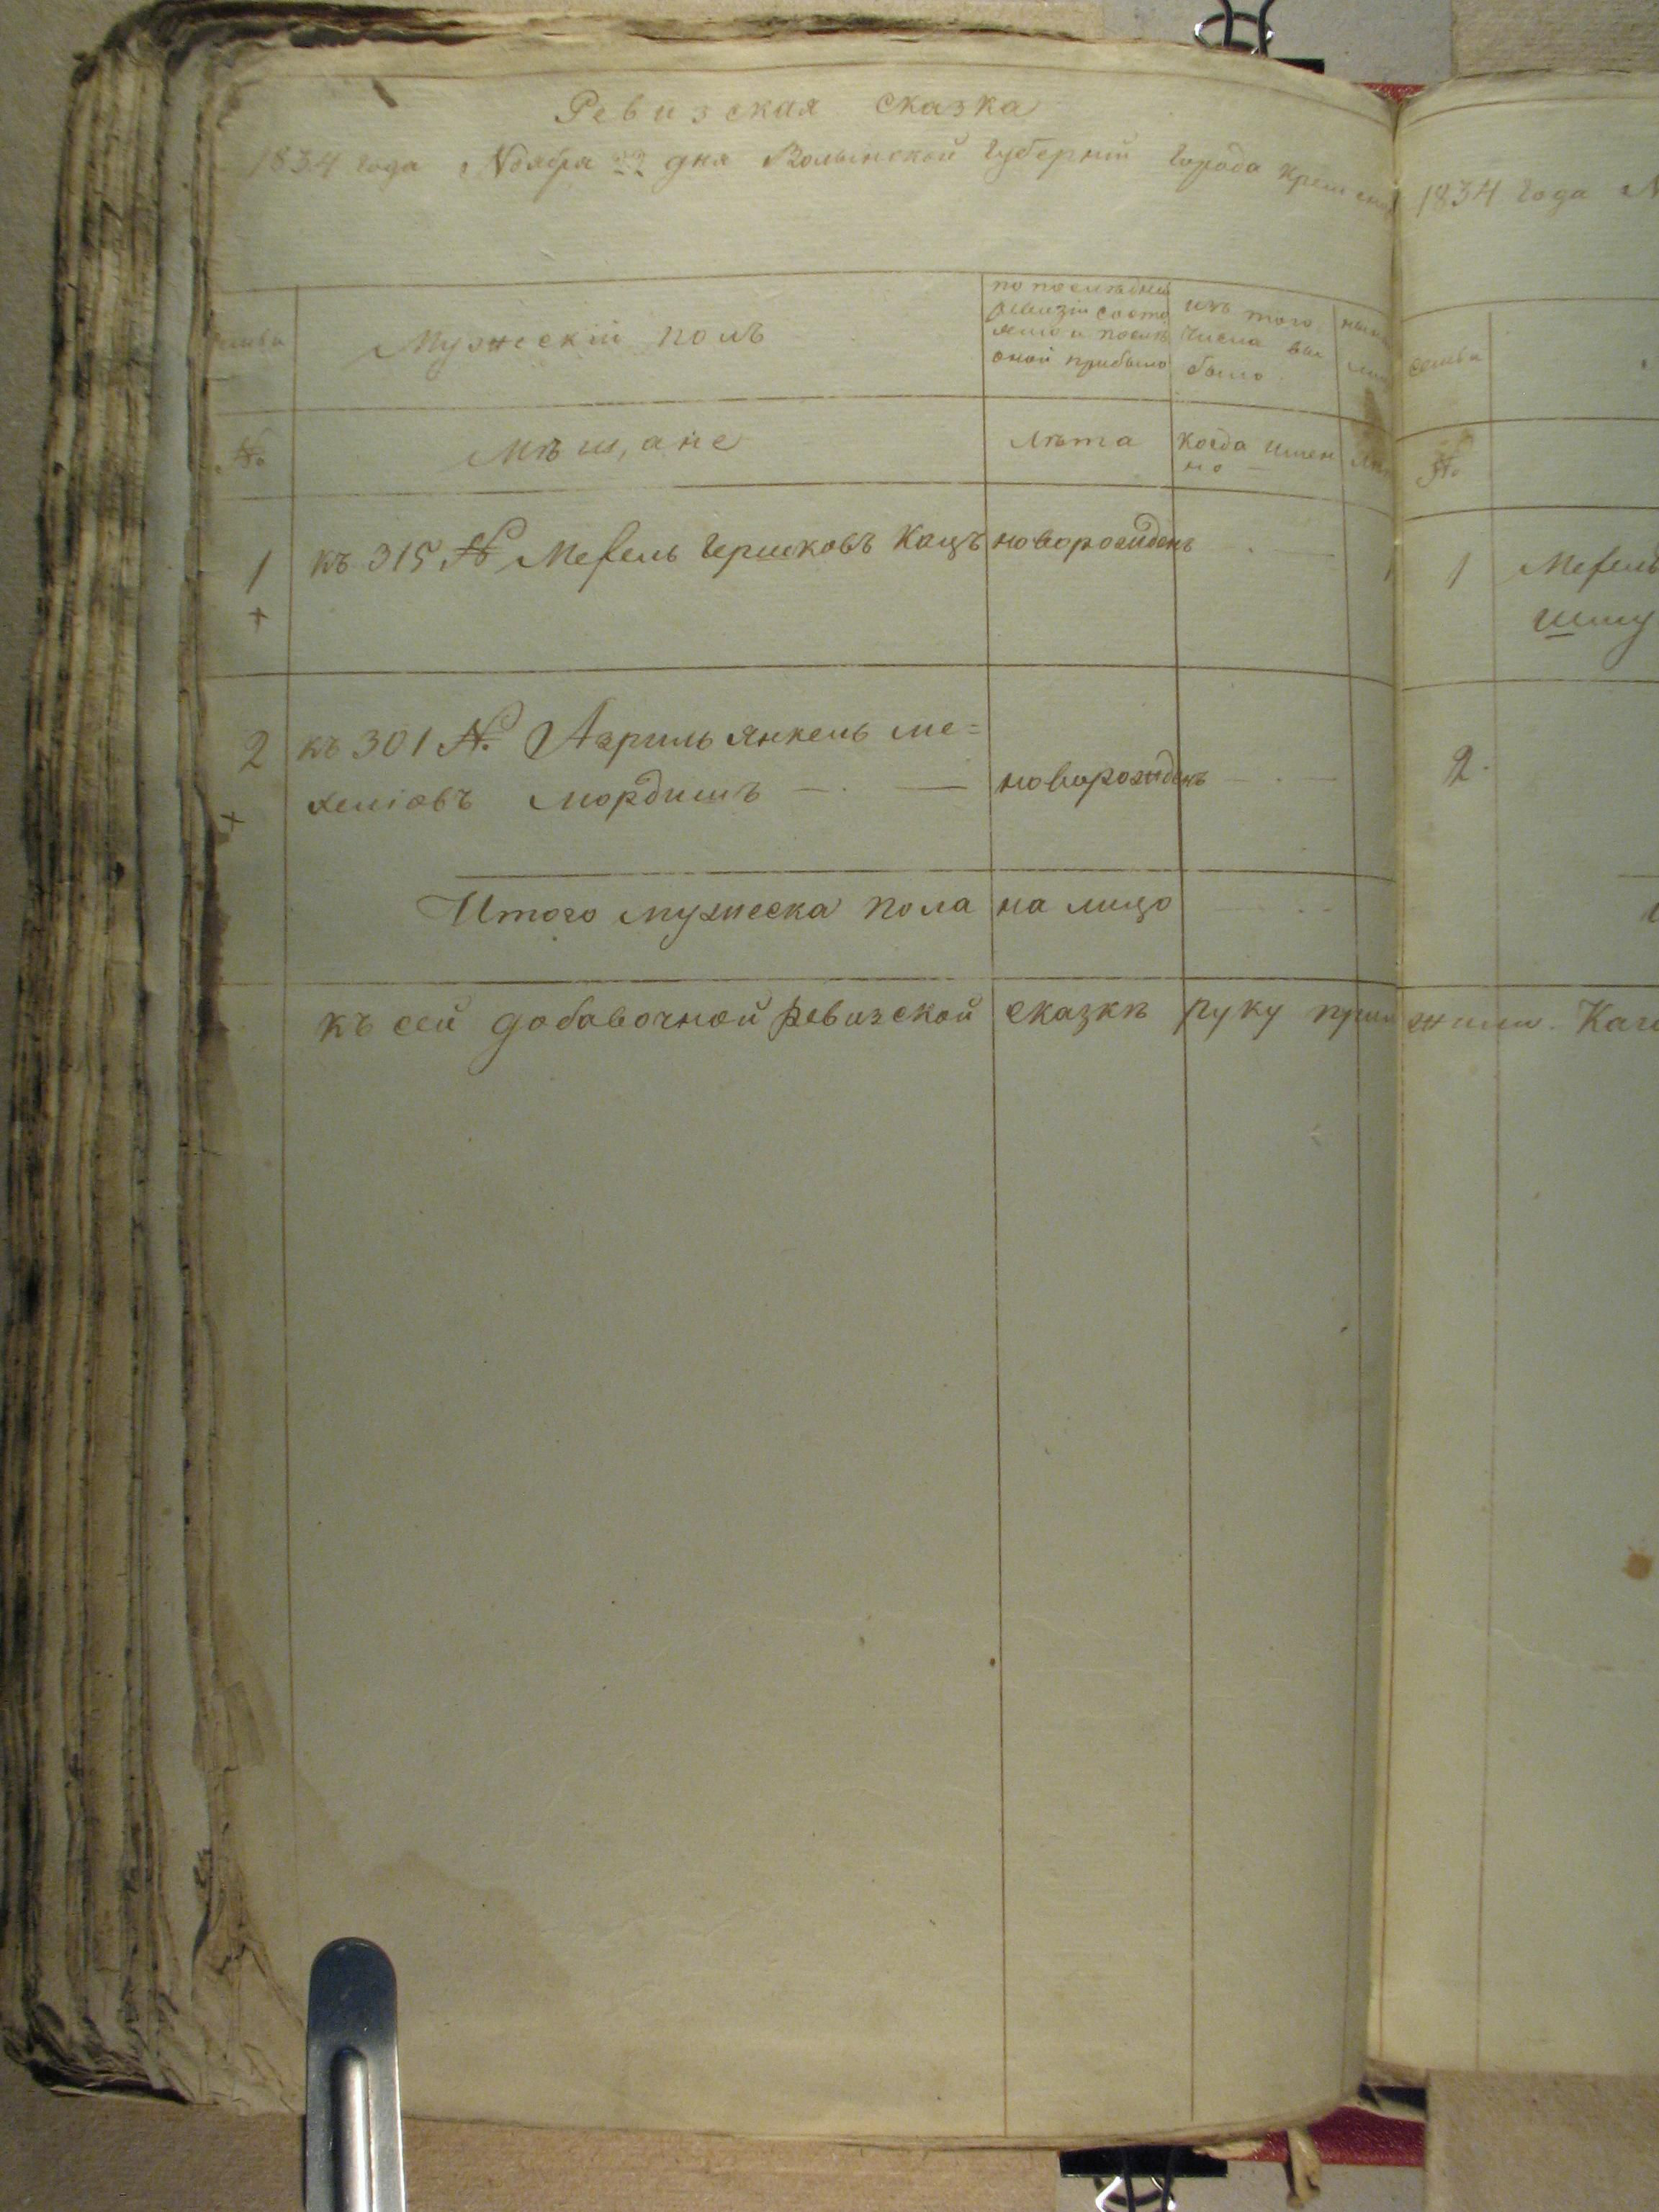 Ревизская сказка
1834 года Ноября 22 дня Волынской Губернии Города Кремен
семьи
Мужескій полъ
по последней
ревизіи состо
яло и после
оной прибыло
изъ того
числа вы
было
№
Мѣщане
Лѣта
когда имен
но
1
къ 315 № Мехель Гершковъ Кацъ
новорожденъ
2
къ 301 №. Азриль Янкель Ме=
хеліовъ Мордишъ
новорожденъ
Итого мужеска пола на лицо
къ сей добавочной ревизской сказкѣ руку прило
1834 Года Н
семьи
№
1
Мехель
2
жили. Кага